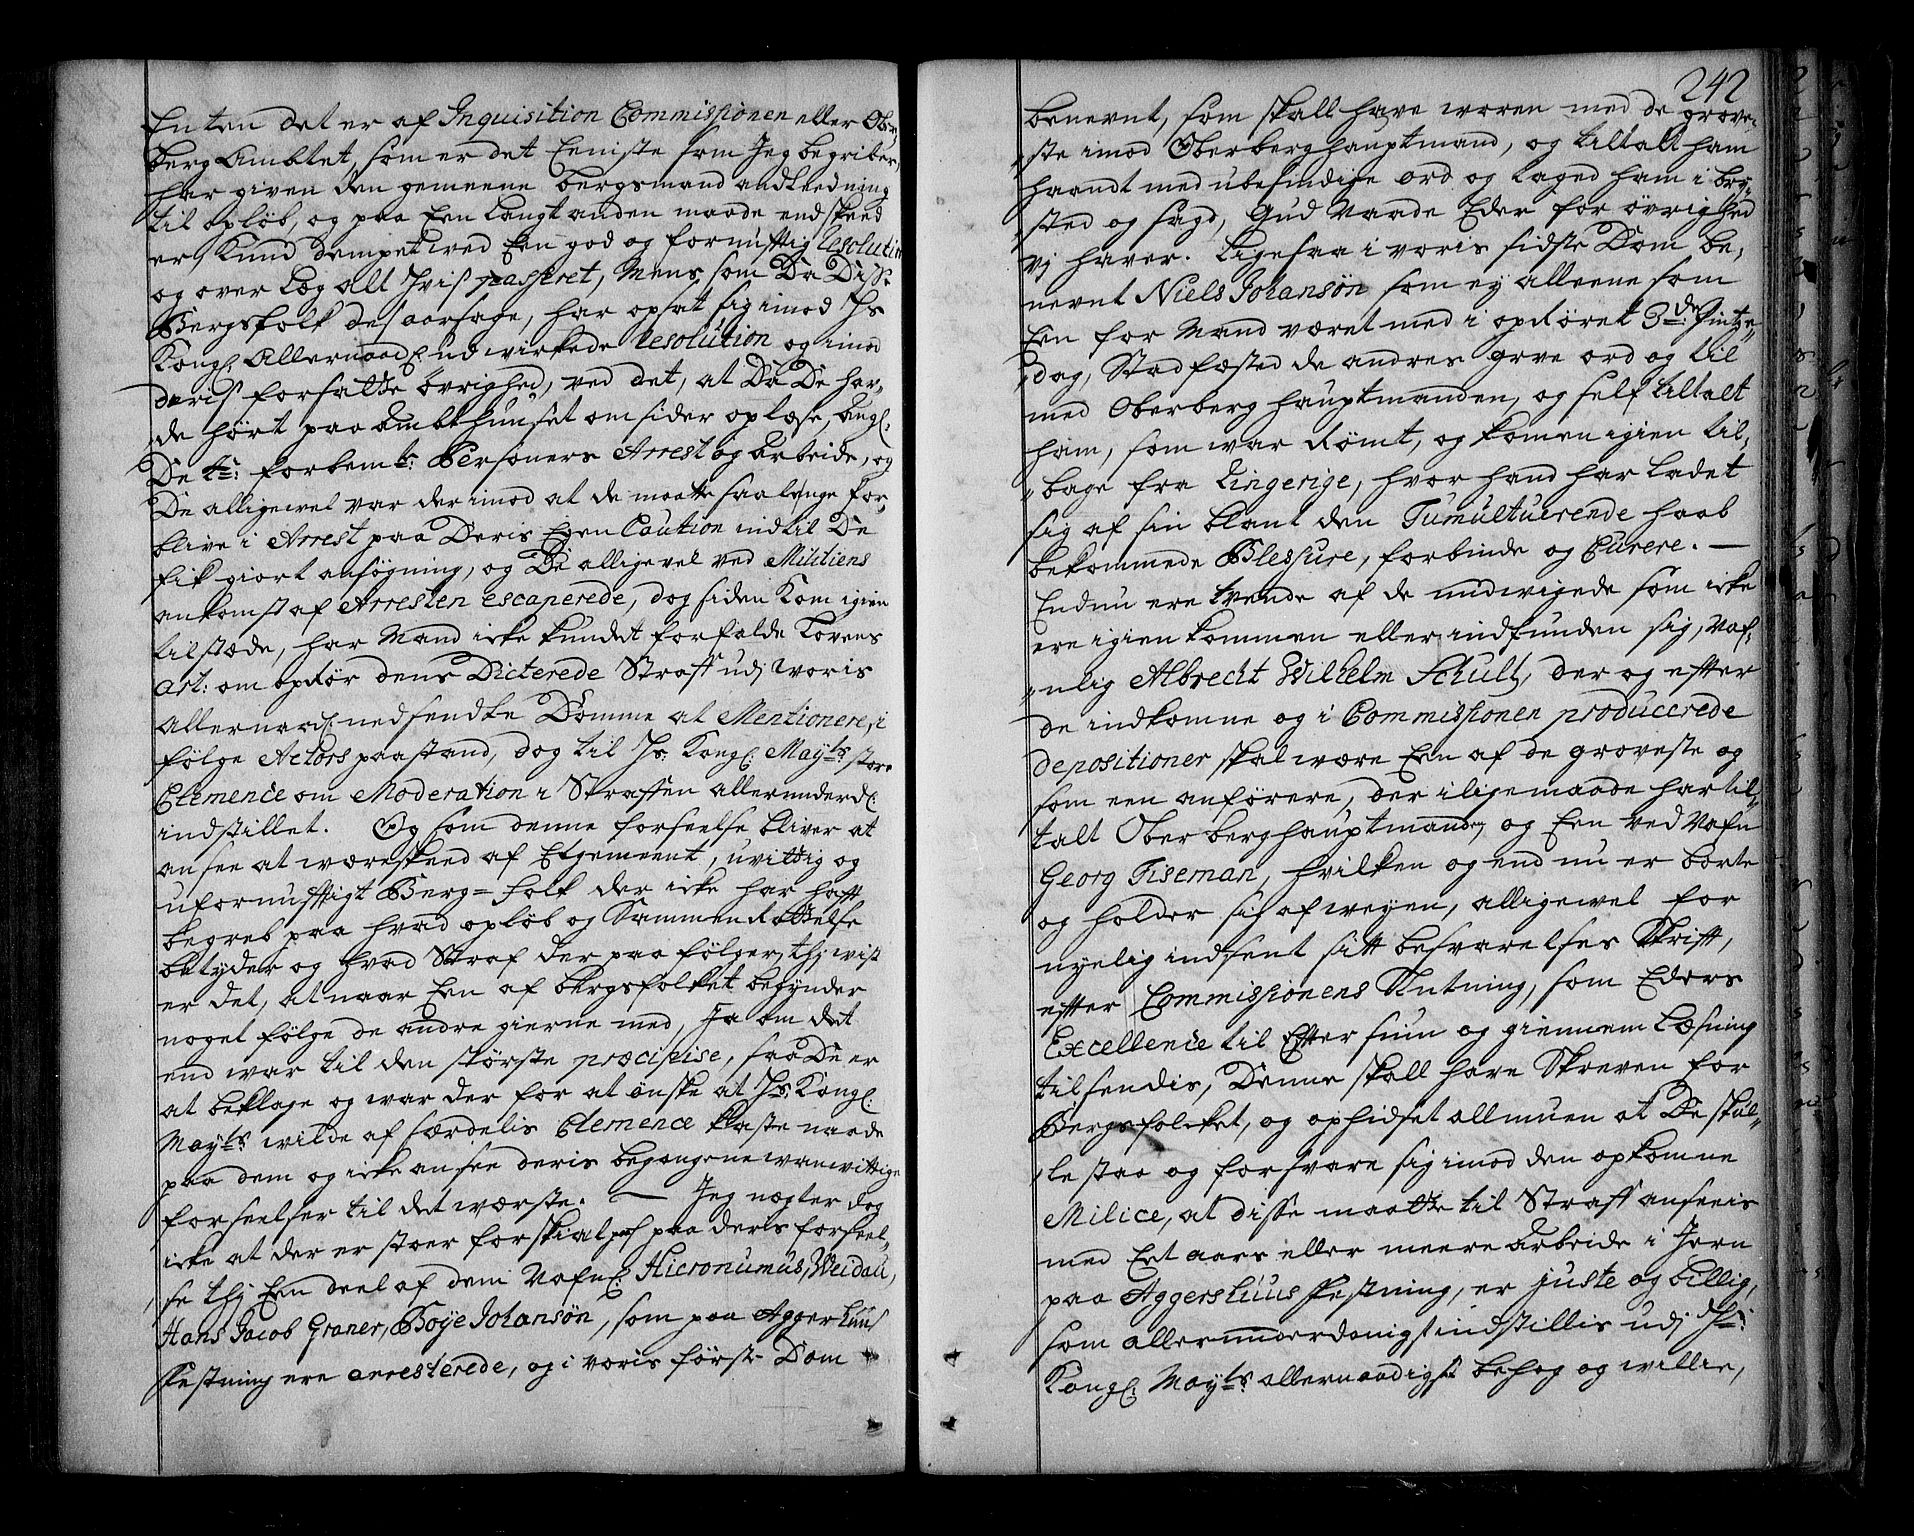 Enten det er af Inquisition Commissionen eller Ober,
berg Ambtet, som er det Eeniste som Jeg begriber,
har given den gemeene bergsmand andleedning
til opløb, og paa Een langt anden maade end skeed
er, kund dempet wed Een god og fornufftig Resolution
og over læg alt hvis passeret, Mens som Da Diss:
Bergsfolk des aarsage, har opsat sig imod Hs
Kongl: Allernaadl: udwirkede Resolution og imod
deris forsatte øvrighed, ved det, at Da De har,
de hørt paa Ambthuuset omsider oplæse, angl:
De forbem: Personers Arrest og Arbeide, og
De alligewel var der imod at de maatte saa længe for,
blive i Arrest paa Deris Egen Caution indtil De
fik giort ansøgning, og De alligevel ved Militiens
ankomst af Arresten escaperede, dog siden Kom igien
tilstæde, har Mand icke kundet forfalde Lovens
Art: om opkør dens Dicterede Straff udj woris
allernaadl: nedsendte Domme at Mentionere, i
følge Actors paastand, dog til Hs: Kongl: Mayts stor
Clemence om Moderation i Straffen allerunderdl:
indstillet. Og som denne forseelse bliver at
ansee at wære skeed af Et gemeent, uvittig og
ufornufftigt Berg=folk der icke har hafft
begreb paa hvad opløb og Sammenrottelse
betyder og hvad Straf der paa følger, thj wist
er det, at naar Een af bergsfolket begynder
noget følge de andre gierne med, Ja om det
end war til den største præcipise, saa De er
at beklage og war der for at ønske at Hs: Kongl:
Mayts wilde af særdelis Clemence kaste naade
paa dem og icke ansee deris begangene wanwittige
forseelser til det wærste. — Jeg nægter dog
icke at der er stoer forskial paa deris forseel,
se thj Een deel af dem Nafnl: Hieronumus Weidau,
Hans Jacob Graner, Boÿe Johansøn, som paa Aggerhuus
Festning ere arresterede, og i voris første Dom
242
benevnt, som skall have woren med de grove,
ste imod Oberberghauptmand, og tiltalt ham
haandt med ubesindige ord og taged ham i bry,
sted og sagd, Gud Naade Eder for øvrighed
vj haver. Ligesaa i voris sidste Dom be,
nevnt Niels Johansøn som ej alleene som
Een for Mand været med i opkøret 3de Pintze,
dag, Stadfæsted de andres grove ord og til
med Oberberghauptmanden, og self tiltalt
ham, som war rømt, og komen igien til,
bage fra Ringerige, hvor hand har ladet
sig af sin blant den Tumultuerende haab
bekommede Blessure, forbinde og Curere. —
Endnu ere tvende af de undwigede som icke
ere igien kommen eller indfunden sig, Naf,
nlig Albrecht Wilhelm Schult, der og effter
de indkomne og i Commissionen producerede
depositioner skal wære Een af de groveste og
som een anførere, der i lige maade har til,
talt Oberberghauptmanden, og Een ved Nafn
Georg Tiseman, hvilken og end nu er borte
og holder sig af weyen, alligewel for
nyelig indsent sitt besvarelses Skrifft,
effter Commissionens Slutning, som Eders
Excellence til Effter siun og giennem læsning
tilsendis, Denne skall have Skreven for
Bergsfolcket, og ophidset allmuen at De skul,
le staa og forsvare sig imod den opkomne
Milice, at disse maatte til Straff anseeis
med Eet aars eller meere Arbeide i Jern
paa Aggershuus Festning, er juste og billig,
som allerunderdanigst indstillis udj Hs:
Kongl: Mayts allernaadigste behag og willie,